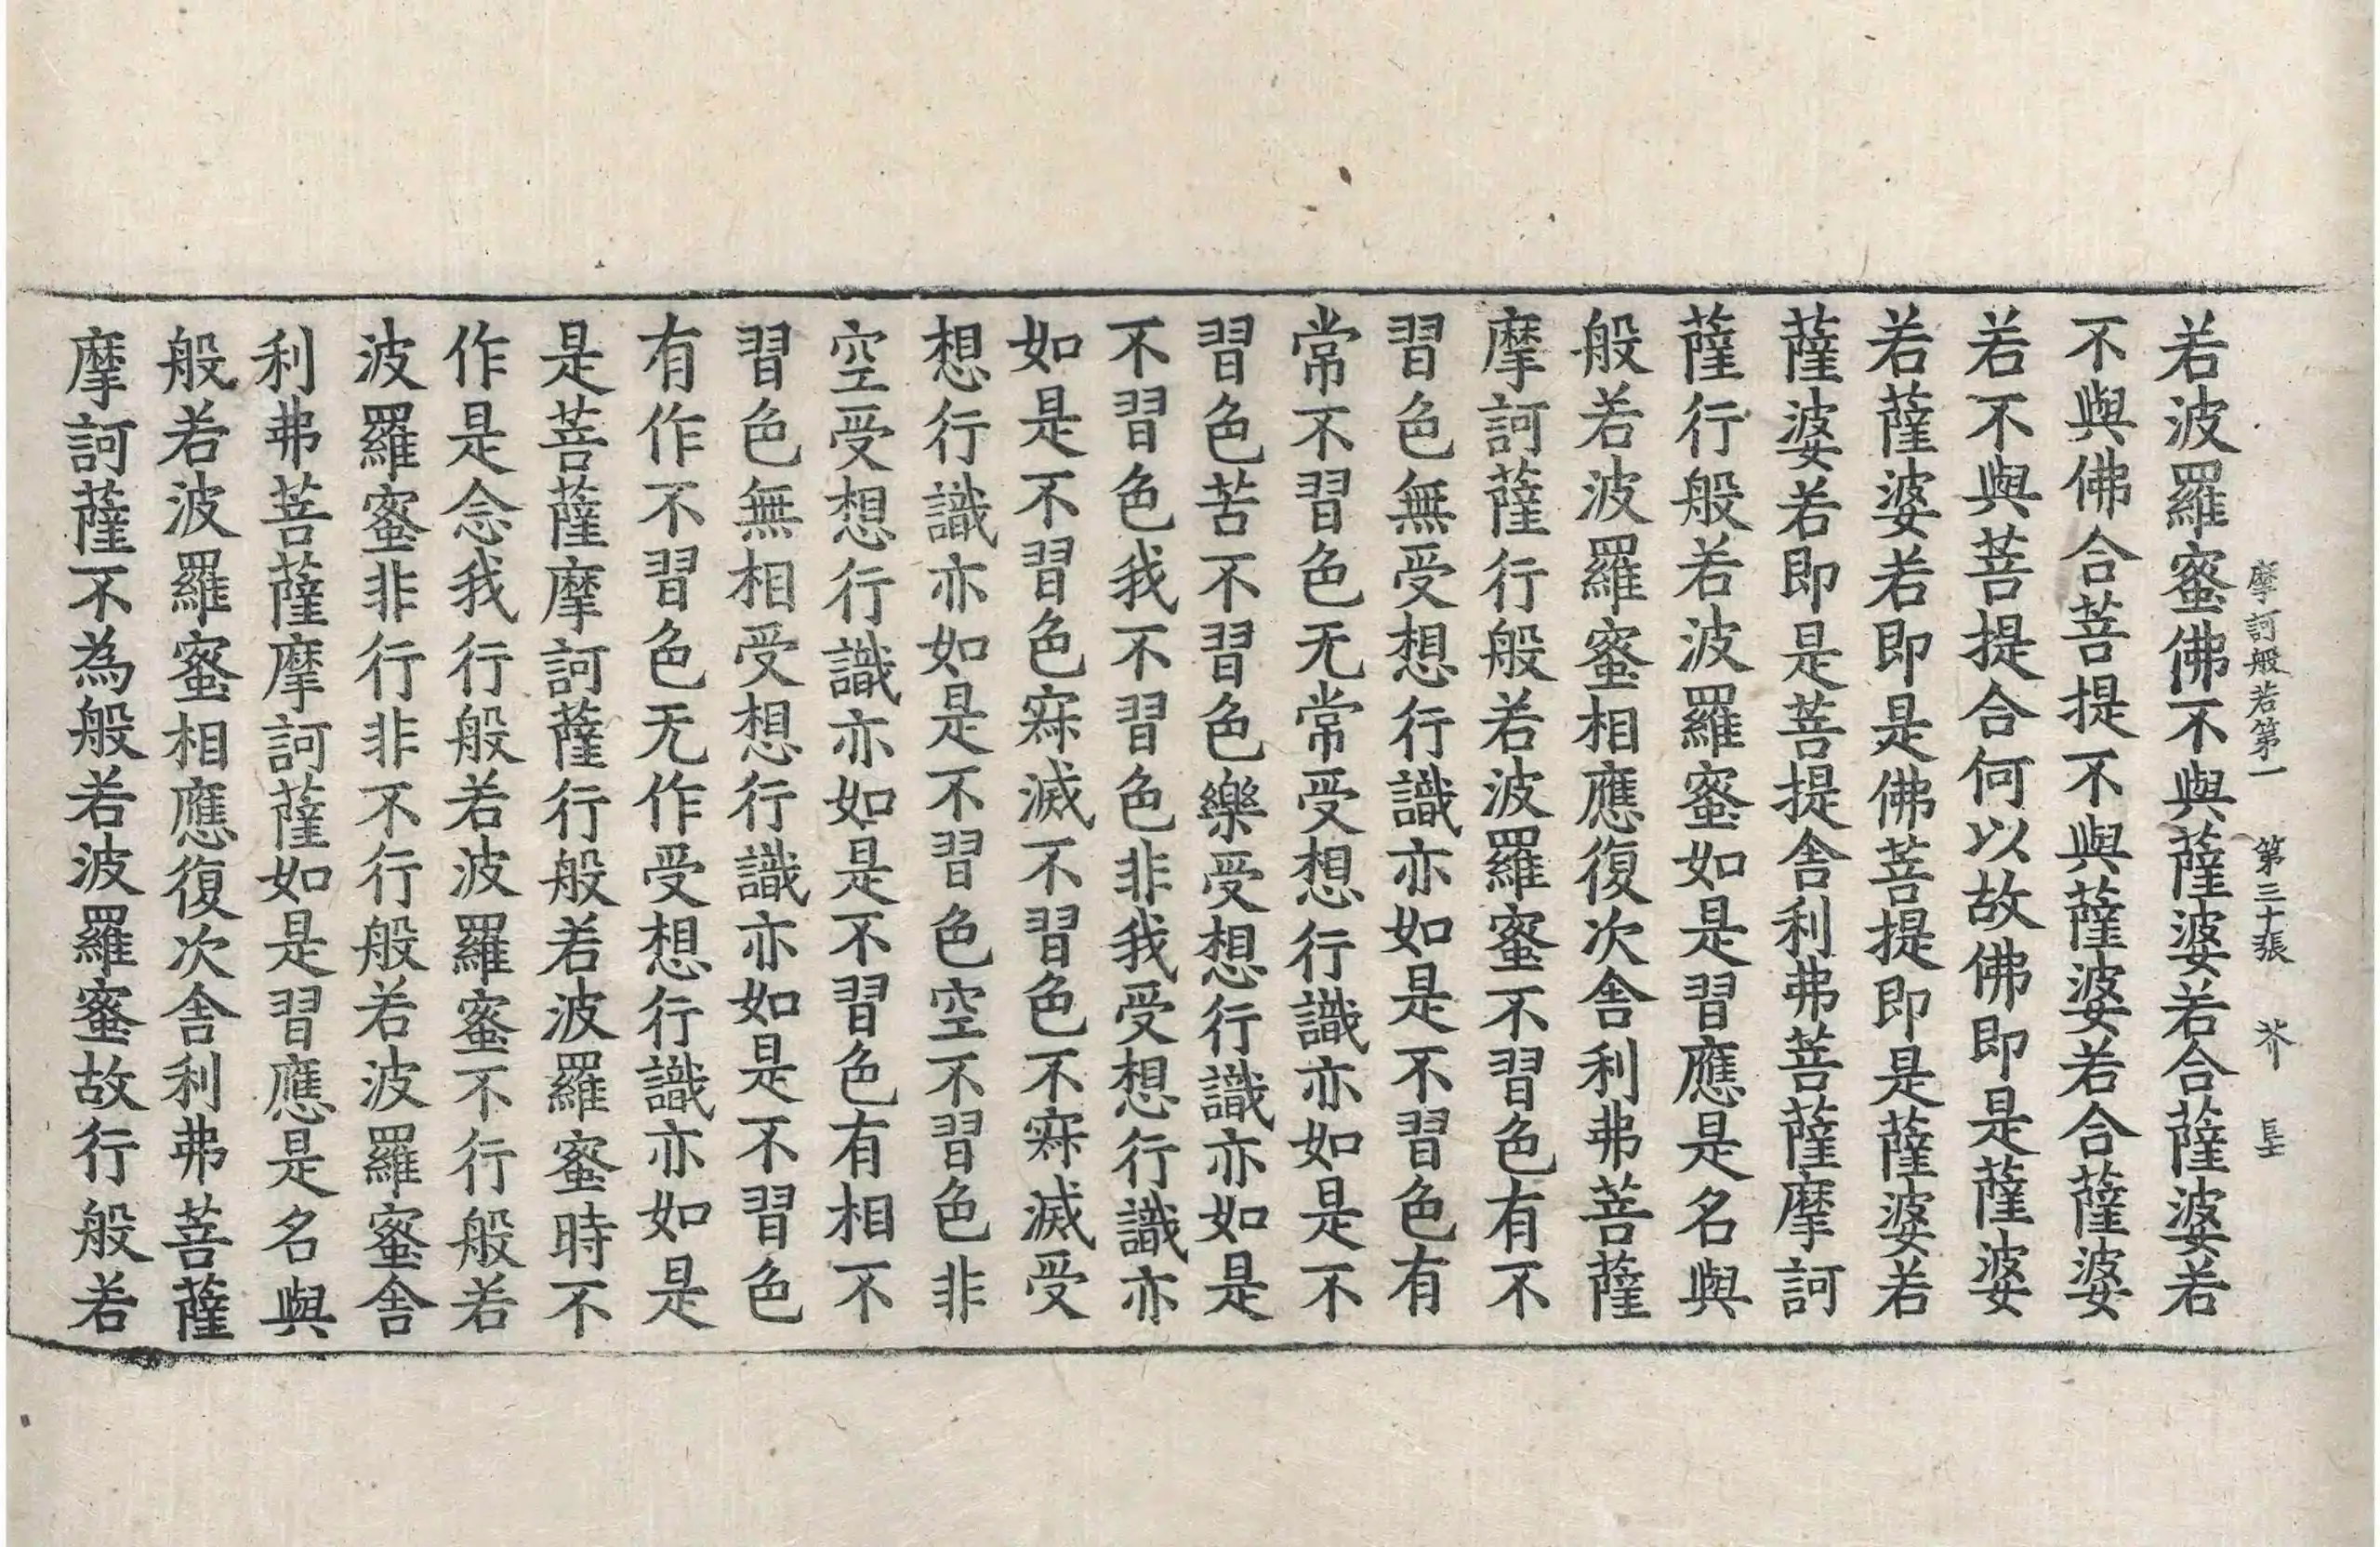 摩訶般若第一 第三十張 芥
若波羅蜜佛不與薩婆若合薩婆若
不與佛合菩提不與薩婆若合薩婆
若不與菩提合何以故佛即是薩婆
若薩婆若即是佛菩提即是薩婆若
薩婆若即是菩提舍利弗菩薩摩訶
薩行般若波羅蜜如是習應是名與
般若波羅蜜相應復次舍利弗菩薩
摩訶薩行般若波羅蜜不習色有不
習色無受想行識亦如是不習色有
常不習色无常受想行識亦如是不
習色苦不習色樂受想行識亦如是
不習色我不習色非我受想行識亦
如是不習色寂滅不習色不寂滅受
想行識亦如是不習色空不習色非
空受想行識亦如是不習色有相不
習色無相受想行識亦如是不習色
有作不習色无作受想行識亦如是
是菩薩摩訶薩行般若波羅蜜時不
作是念我行般若波羅蜜不行般若
波羅蜜非行非不行般若波羅蜜舍
利弗菩薩摩訶薩如是習應是名與
般若波羅蜜相應復次舍利弗菩薩
摩訶薩不為般若波羅蜜故行般若